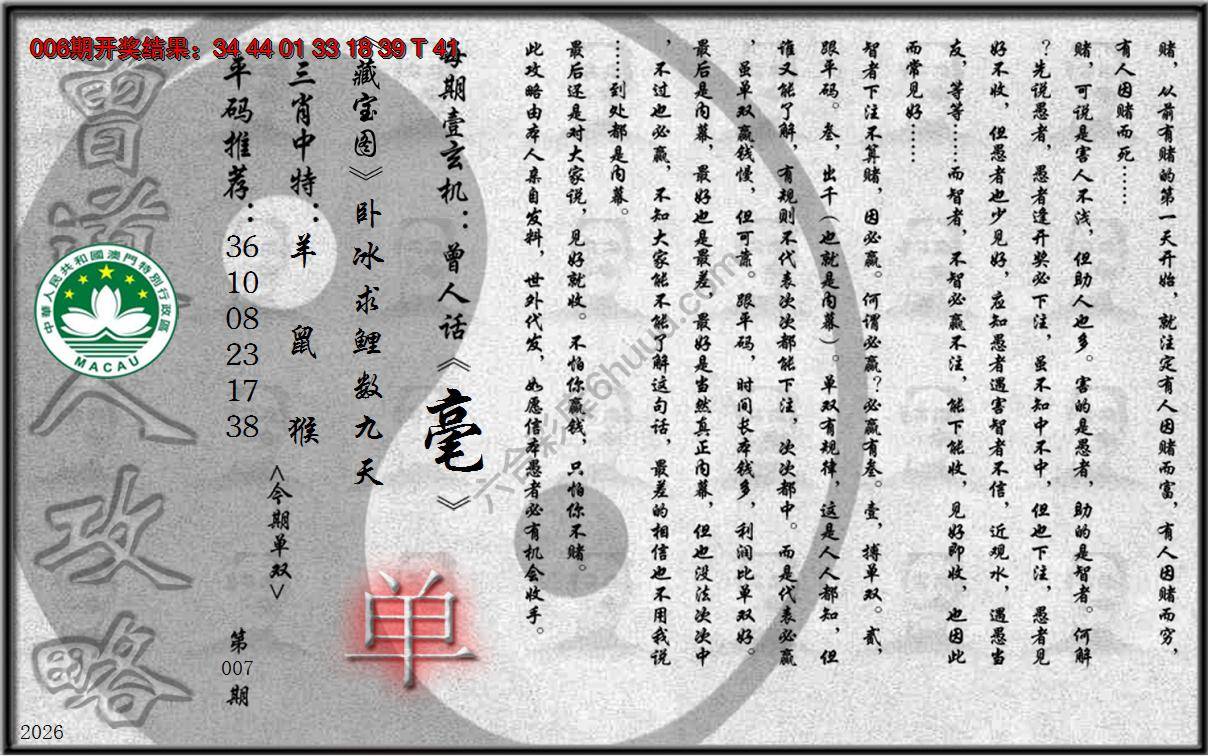 006期开奖结果：34 44 01 33 18 39 T 41
赌，从前有赌的第一天开始，就注定有人因赌而富，有人因赌而穷，
有人因赌而死……
赌，可说是害人不浅，但助人也多。害的是愚者，助的是智者。何解
？先说愚者，愚者逢开奖必下注，虽不知中不中，但也下注，愚者见
好不收，但愚者也少见好，应知愚者遇害智者不信，近观水，遇愚当
友，等等……而智者，不智必赢不注，能下能收，见好即收，也因此
而常见好……
智者下注不算赌，因必赢。何谓必赢？必赢有叁。壹，搏单双。贰，
跟平码。叁，出千（也就是内幕）。单双有规律，这是人人都知，但
谁又能了解，有规则不代表次次都能下注，次次都中。而是代表必赢
，虽单双赢钱慢，但可靠。跟平码，时间长本钱多，利润比单双好。
最后是内幕，最好也是最差，最好是当然真正内幕，但也没法次次中
，不过也必赢，不知大家能不能了解这句话，最差的相信也不用我说
……到处都是内幕。
最后还是对大家说，见好就收。不怕你赢钱，只怕你不赌。
此攻略由本人亲自发料，世外代发，如愿信本愚者必有机会收手。
每期壹玄机：曾人话《毫》
《藏宝图》卧冰求鲤数九天
三肖中特：羊 鼠 猴
平码推荐：36 10 08 23 17 38
<今期单双>
单
第007期
曾道人攻略
中華人民共和國澳門特別行政區
MACAU
六合彩库6huuu.com
2026